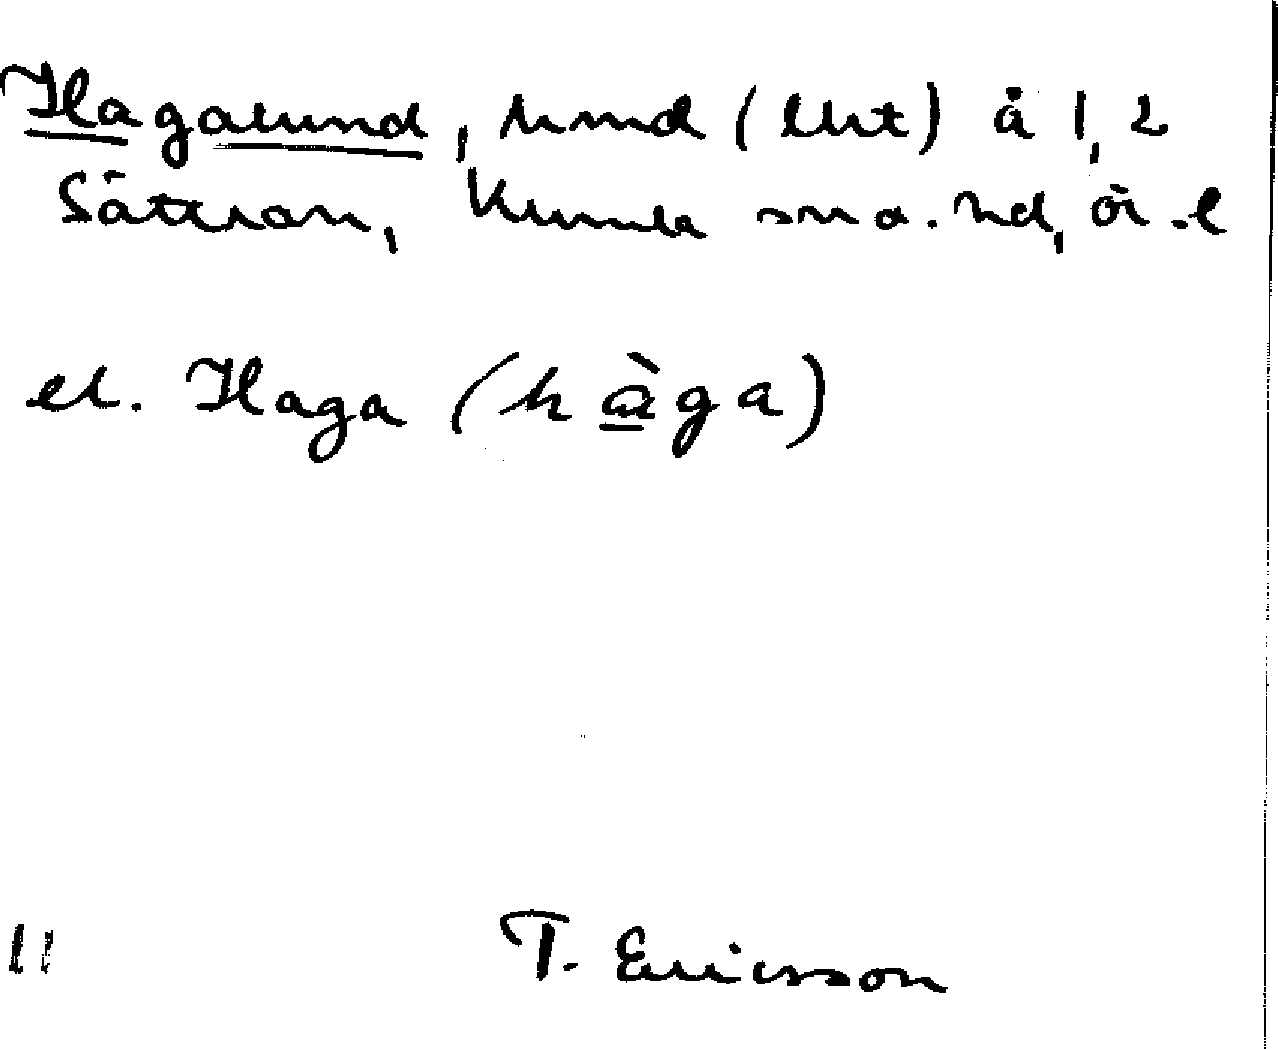 Hagalund, hmd (lht) å 1,2
Sättran, Kumla sn o. hd, ör.l
el. Haga (hàga)
11
T. Ericsson